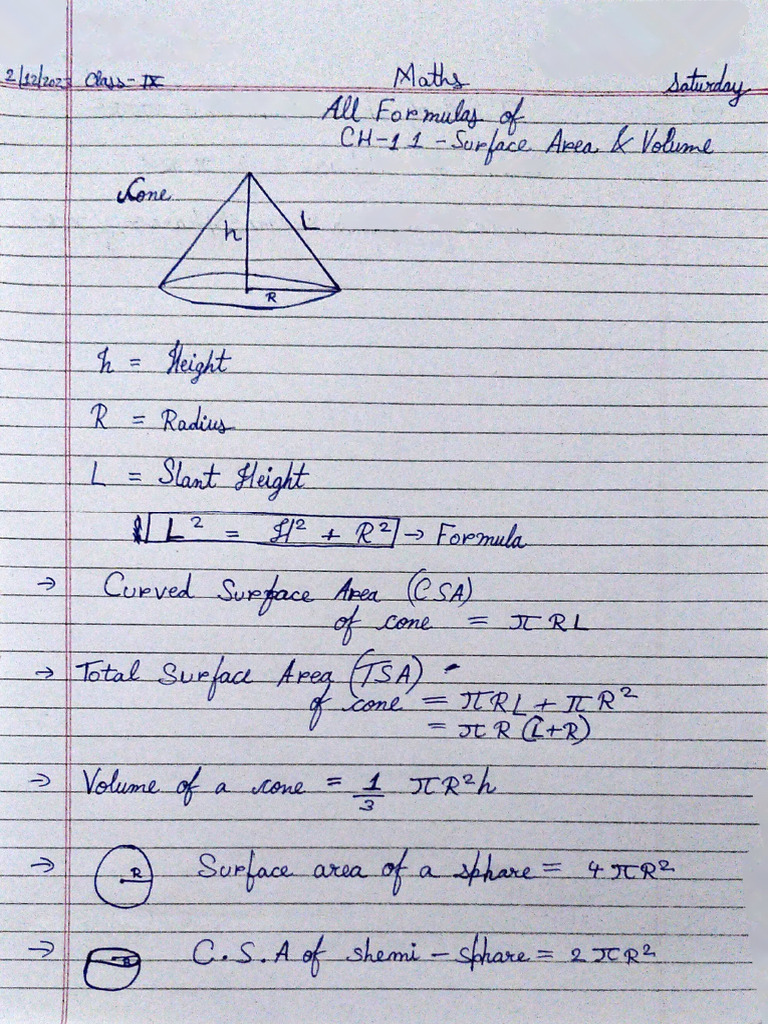 2/12/2023 Class-IX Maths Saturday
All Formulas of
CH-11-Surface Area & Volume
Cone
h
L
R
h = Height
R = Radius
L = Slant Height
L² = H² + R² → Formula
→ Curved Surface Area (CSA)
of cone = πRL
→ Total Surface Area (TSA)
of cone = πRL + πR²
= πR (L+R)
→ Volume of a cone = 1/3 πR²h
→ R Surface area of a sphare = 4πR²
→ R C.S.A of shemi-sphare = 2πR²